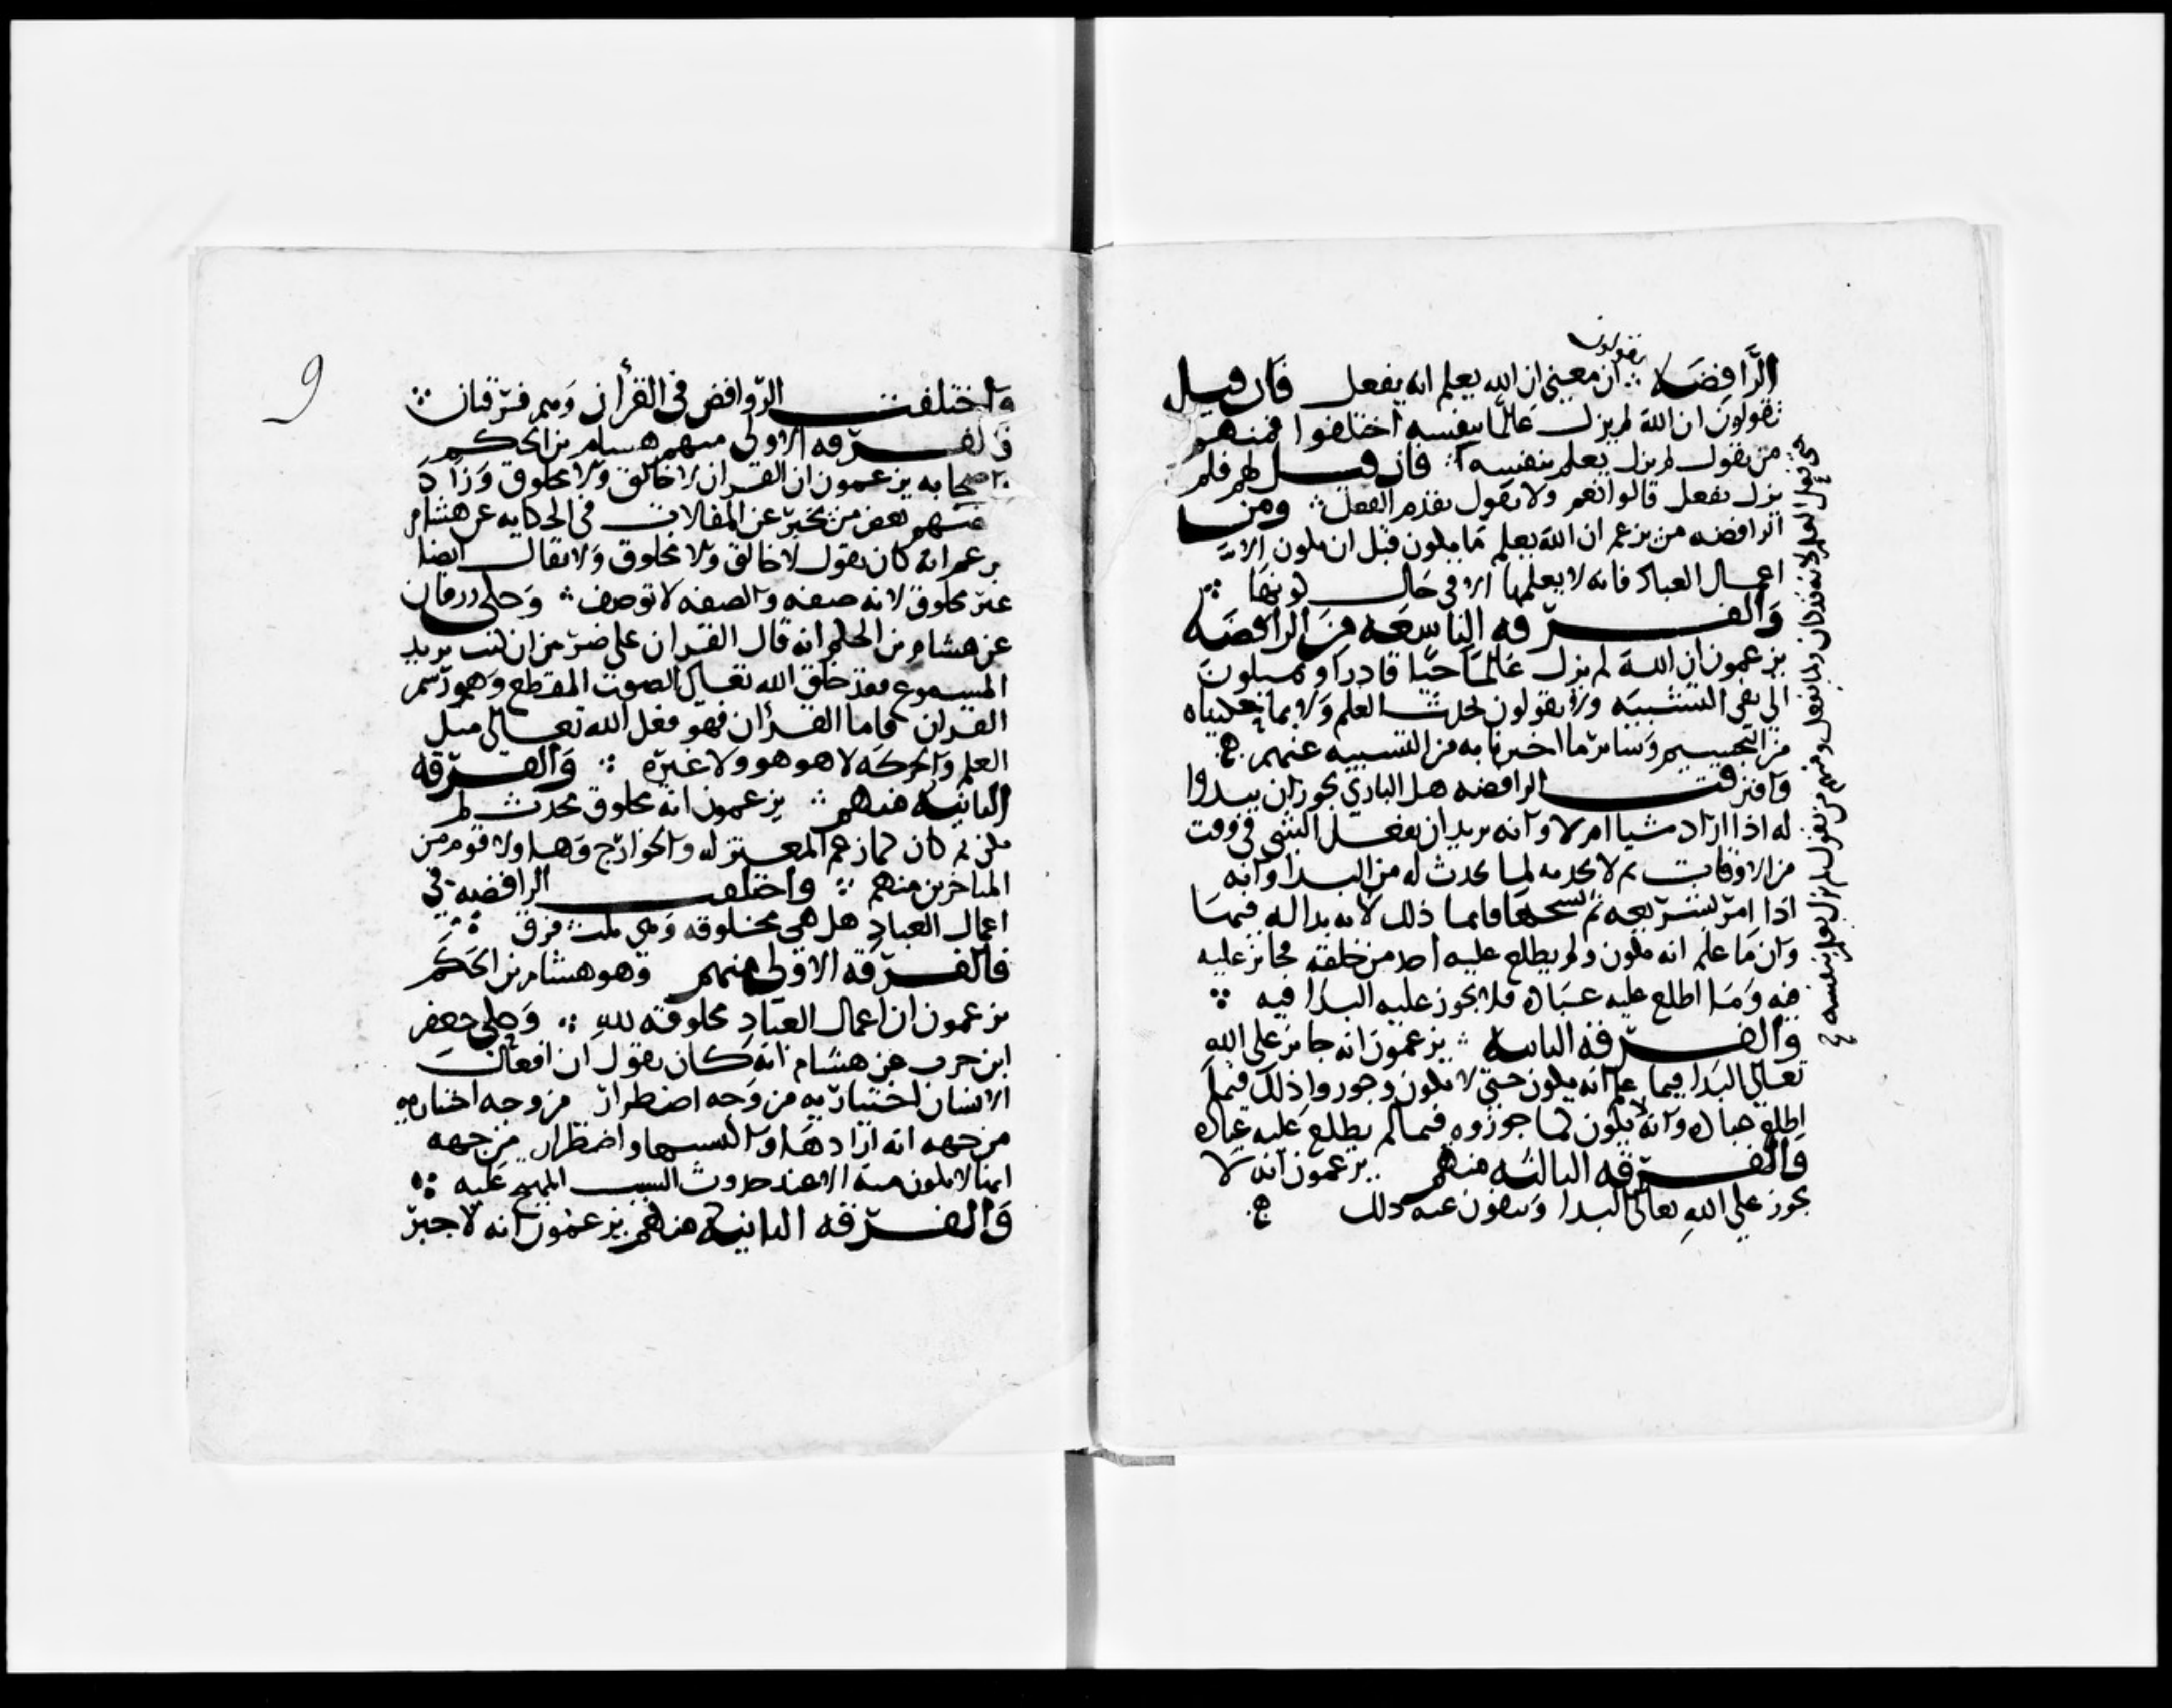 يقولون
الرافضة ان معنى ان الله يعلم انه يفعل فان قيل
تقولون ان الله لم يزل عالما بنفسه اختلفوا فمنهم
من يقول لم يزل يعلم بنفسه فان قيل لهم فلم
يزل يفعل قالوا نعم ولا يقول بقدم الفعل ومن
الرافضه من يزعم ان الله يعلم ما يكون قبل ان يكون الا
اعمال العباد فانه لا يعلمها الا في حال كونها
والفرقه التاسعه من الرافضه
يزعمون ان الله لم يزل عالما حيا قادرا ويميلون
الى نفي التشبيه ولا يقولون بحدث العلم ولا بما حكيناه
من التجسيم وسائر ما اخبرنا به من التشبيه عنهم
وافترقت الرافضه هل الباري يجوز ان يبدوا
له اذا اراد شيا ام لا وانه يريد ان يفعل الشي في وقت
من الاوقات ثم لا يحدثه لما يحدث له من البدا وانه
اذا امر بشريعه ثم نسخها فانما ذلك لانه بدا له فيها
وان ما علم انه يكون ولم يطلع عليه احد من خلقه فجائز عليه
فيه وما اطلع عليه عباده فلا يجوز عليه البدا فيه
والفرقه الثانيه يزعمون انه جائز على الله
تعالى البدا فيما علم انه يكون حتى لا يكون وجوزوا ذلك فيما
اطلع عباده وانه لا يكون كما جوزوه فيما لم يطلع عليه عباده
والفرقه الثالثه منهم يزعمون انه لا
يجوز على الله تعالى البدا وينفون عنه ذلك
حتى يفعل العلم لانه قد كان ولما يفعل ومنهم من يقول لم يزل يعلم بنفسه
9
واختلفت الروافض في القرأن وهم فرقتان
والفرقه الاولى منهم هشام بن الحكم
واصحابه يزعمون ان القران لا خالق ولا مخلوق وزاد
منهم بعض من يخبر عن المقالات في الحكايه عن هشام
يزعم انه كان يقول لا خالق ولا مخلوق ولا يقال ايضا
غير مخلوق لانه صفه والصفه لا توصف وحكى زرقان
عن هشام بن الحكم انه قال القران على ضربين ان كنت تريد
المسموع فقد خلق الله تعالى الصوت المقطع وهو رسم
القران فاما القرأن فهو فعل الله تعالى مثل
العلم والحركه لا هو هو ولا غيره والفرقه
الثانيه منهم يزعمون انه مخلوق محدث لم
يكن ثم كان كما زعم المعتزله والخوارج وهاولا قوم من
المتاخرين منهم واختلفت الرافضه في
اعمال العباد هل هي مخلوقه وهي ثلث فرق
فالفرقه الاولى منهم وهو هشام بن الحكم
يزعمون ان اعمال العباد مخلوقه لله وحكى جعفر
ابن حرب عن هشام انه كان يقول ان افعال
الانسان اختيار به من وجه اضطرار من وجه اختيار
من جهه انه ارادها واكتسبها واضطرار من جهه
انها لا يكون منه الا عند حدوث السبب المهيج عليه
والفرقه الثانيه منهم يزعمون انه لا جبر